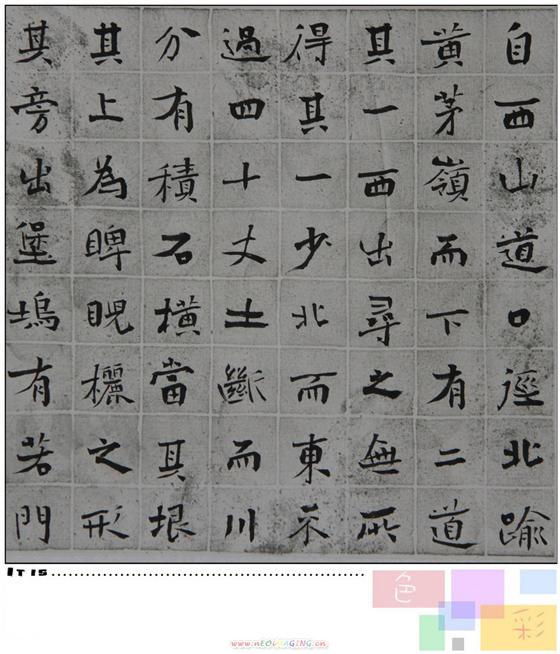 自西山道口徑北踰
黄茅嶺而下有二道
其一西出尋之無所
得其一少北而東不
過四十丈土斷而川
分有積石橫當其垠
其上為睥睨欐之形
其旁出堡塢有若門
IT IS
色
彩
www.nEOIMAGING.cn